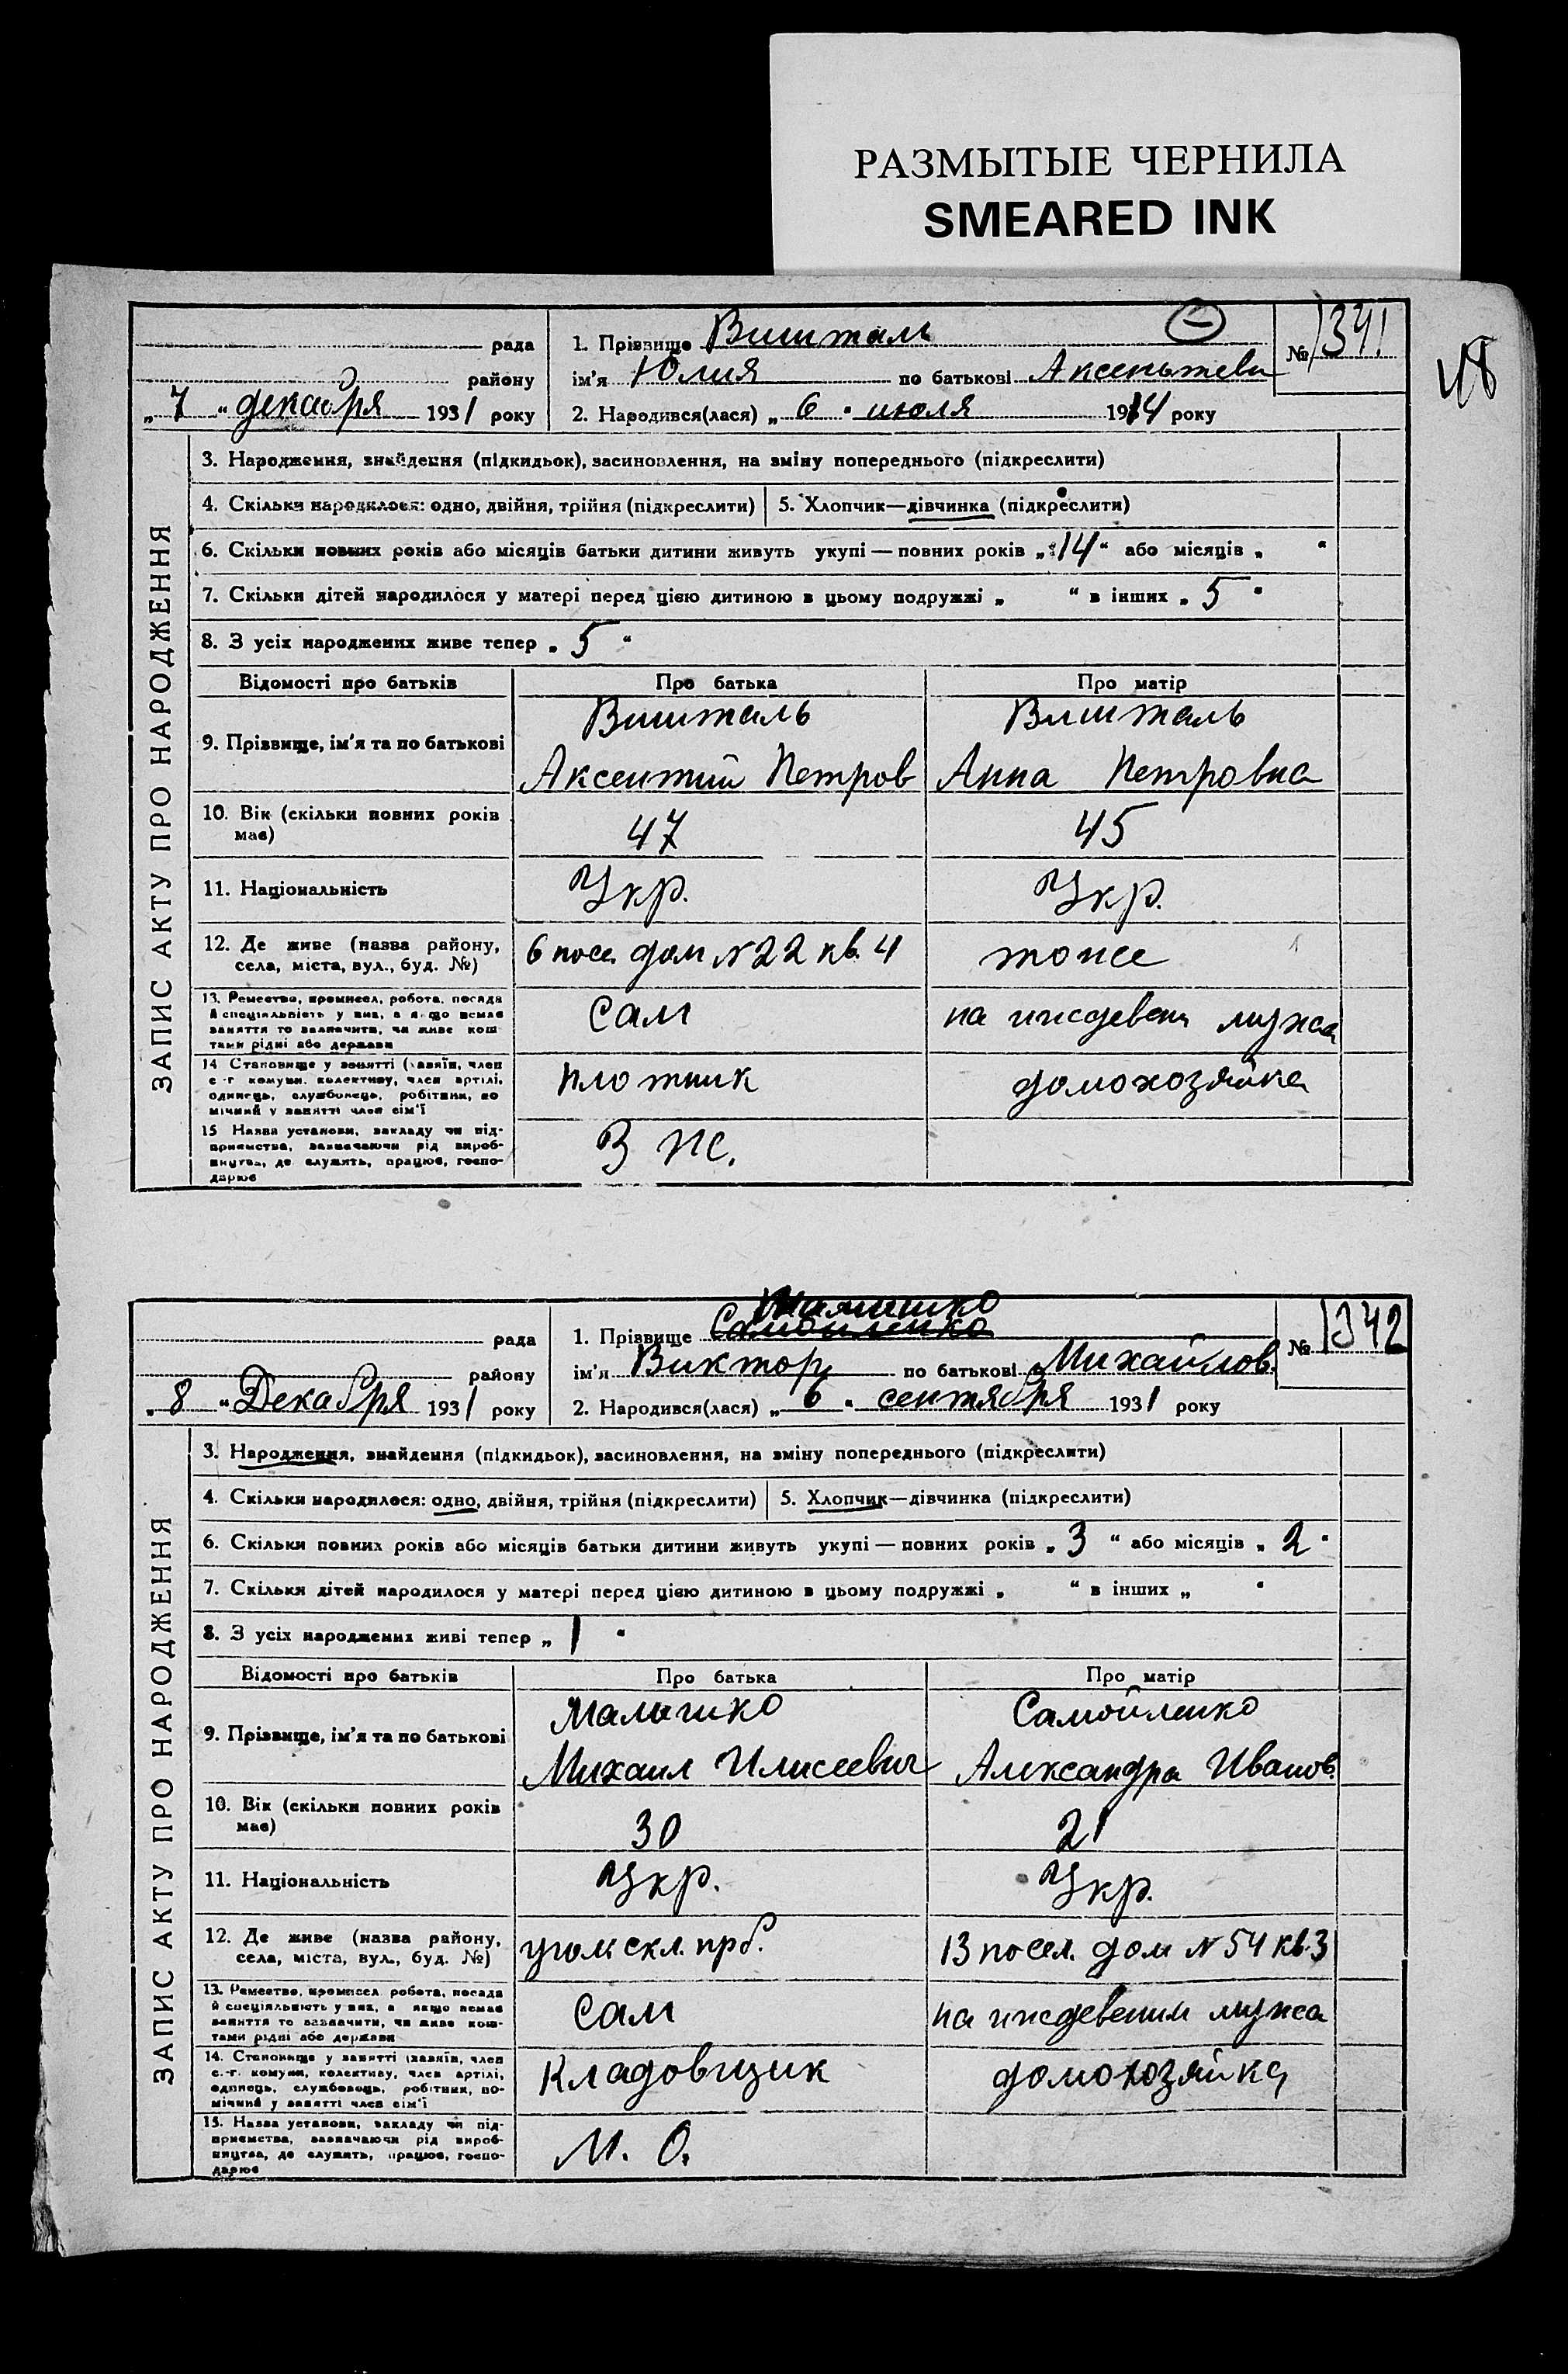 РАЗМЫТЫЕ ЧЕРНИЛА
SMEARED INK
48
рада
району
„ 7 “ декабря 1931 року
1. Прізвище Вишталь
№ 1341
ім'я Юлия по батькові Аксентьевн
2. Народився(лася) „ 6 “ июля 1914 року
ЗАПИС АКТУ ПРО НАРОДЖЕННЯ
3. Народження, знайдення (підкидьок), засиновлення, на зміну попереднього (підкреслити)
4. Скільки народилося: одно, двійня, трійня (підкреслити) 5. Хлопчик—дівчинка (підкреслити)
6. Скільки повних років або місяців батьки дитини живуть укупі — повних років „ 14 “ або місяців „ “
7. Скільки дітей народилося у матері перед цією дитиною в цьому подружжі „ “ в інших „ 5 “
8. З усіх народжених живе тепер „ 5 “
Відомості про батьків Про батька Про матір
9. Прізвище, ім'я та по батькові
Вишталь Вишталь
Аксентий Петров Анна Петровна
10. Вік (скільки повних років має) 47 45
11. Національність Укр. Укр.
12. Де живе (назва району, 6 посе. дом N 22 кв. 4 тоже
села, міста, вул., буд. №)
13. Ремество, промисел, робота, посада Сам на иждевени мужа
й спеціяльність у них, а якщо немає
заняття то зазначити, чи живе кош
тами рідні або держави
14 Становище у занятті (хазяїн, член плотник домохозяйка
с.-г комуни, колективу, член артілі,
одинець, службовець, робітник, по
мічний у занятті член сім'ї
15 Назва установи, закладу чи під-
приємства, зазначаючи рід вироб-
ництва, де служить, працює, госпо-
дарює
рада
району
„ 8 “ Декабря 1931 року
Малышко
1. Прізвище Самойленко
№ 1342
ім'я Виктор по батькові Михайлов.
2. Народився(лася) „ 6 “ сентября 1931 року
ЗАПИС АКТУ ПРО НАРОДЖЕННЯ
3. Народження, знайдення (підкидьок), засиновлення, на зміну попереднього (підкреслити)
4. Скільки народилося: одно, двійня, трійня (підкреслити) 5. Хлопчик—дівчинка (підкреслити)
6. Скільки повних років або місяців батьки дитини живуть укупі — повних років „ 3 “ або місяців „ 2 “
7. Скільки дітей народилося у матері перед цією дитиною в цьому подружжі „ “ в інших „ “
8. З усіх народжених живі тепер „ 1 “
Відомості про батьків Про батька Про матір
9. Прізвище, ім'я та по батькові
Малышко Самойленко
Михаил Илисеевич Александра Иванов.
10. Вік (скільки повних років має) 30 21
11. Національність Укр. Укр.
12. Де живе (назва району, 13 посел. дом N 54 кв. 3
села, міста, вул., буд. №)
13. Ремество, промисел робота, посада Сам на иждевении мужа
й спеціяльність у них, а якщо немає
заняття то зазначити, чи живе кош-
тами рідні або держави
14. Становище у занятті (хазяїн, член Кладовщик домохозяйка
с.-г. комуни, колективу, член артілі,
одинець, службовець, робітник, по-
мічний у занятті член сім'ї
15. Назва установи, закладу чи під- М. О.
приємства, зазначаючи рід вироб-
ництва, де служить, працює, госпо-
дарює